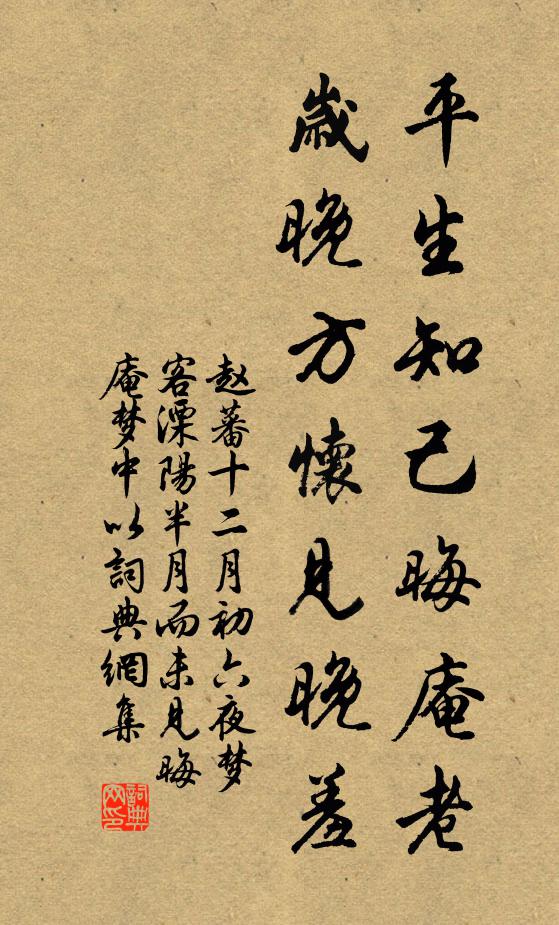 平生知己晦庵老
歲晚方懷見晚羞
赵蕃十二月初六夜梦
客溧陽半月而未見晦
庵梦中以詞典網集
詞典
网印